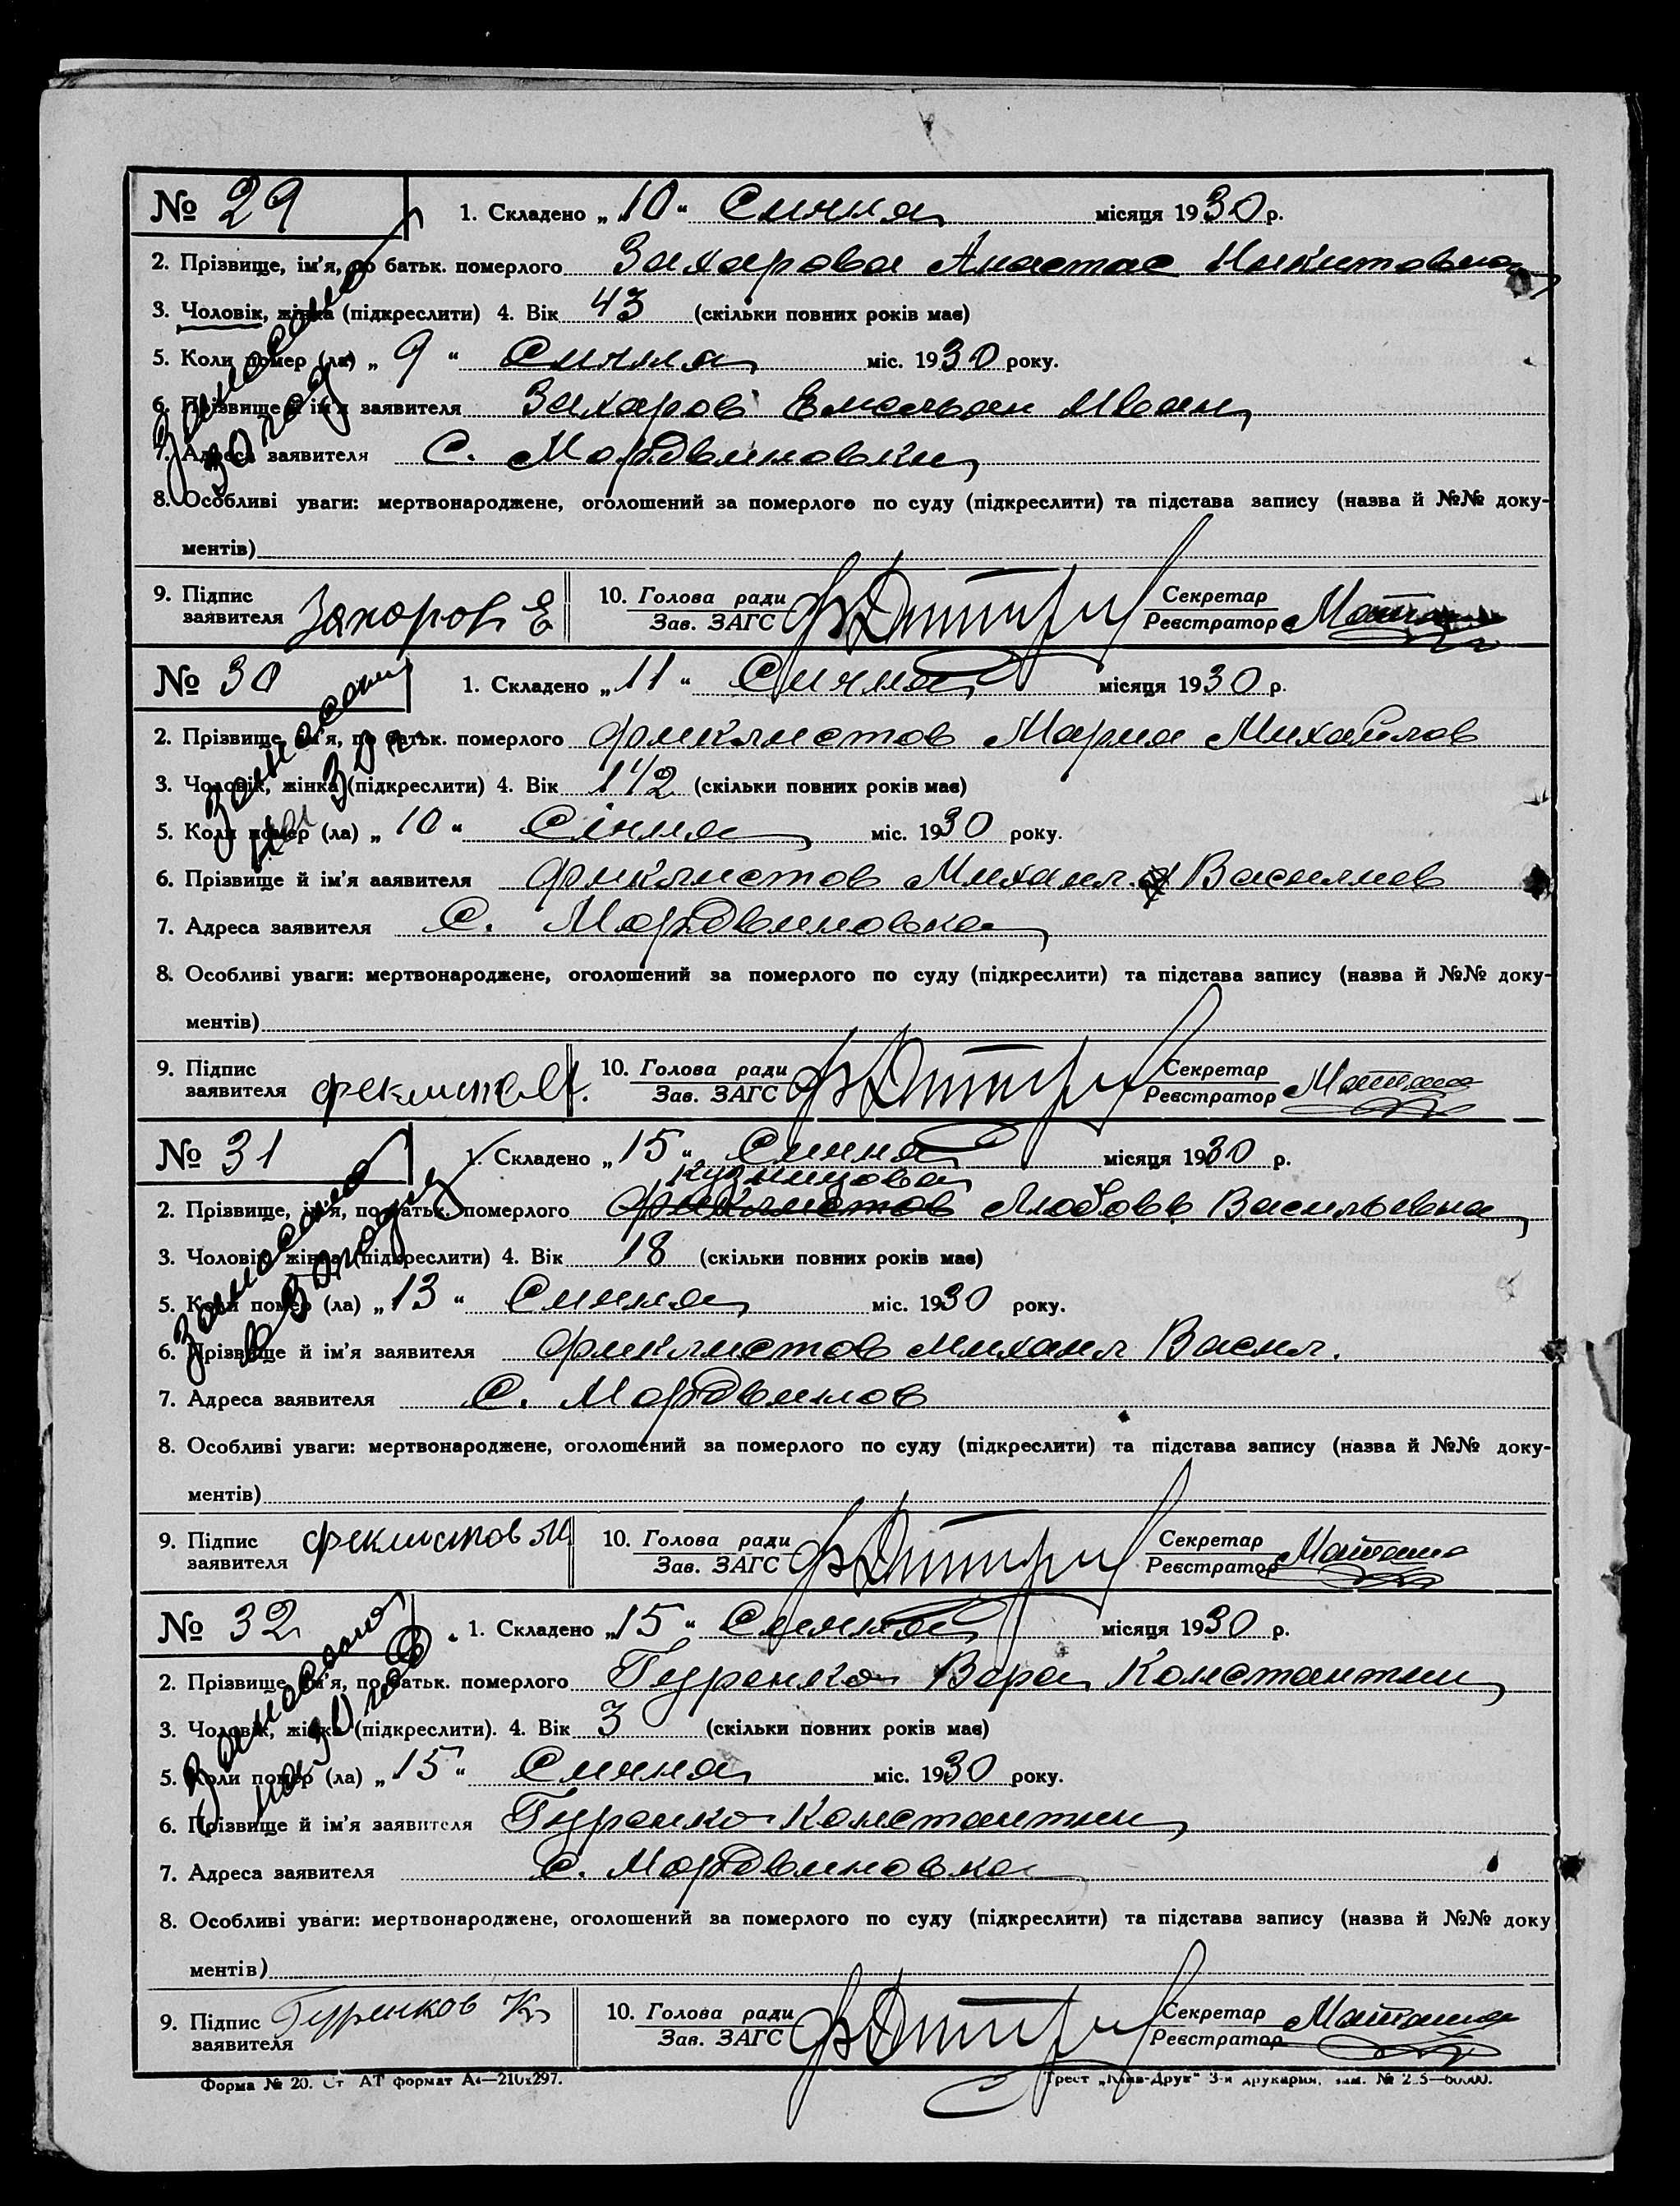 № 29
1. Складено „ 10 “ Сичня місяця 1930 р.
2. Прізвище, ім'я, по батьк. померлого Захарова Анастас Никитовна
3. Чоловік, жінка (підкреслити) 4. Вік 43 (скільки повних років має)
5. Коли помер (ла) „ 9 “ Сичня міс. 1930 року.
6. Прізвище й ім'я заявителя Захаров Емельян Иван
7. Адреса заявителя С. Мордвиновки
8. Особливі уваги: мертвонароджене, оголошений за померлого по суду (підкреслити) та підстава запису (назва й №№ доку-
ментів)
9. Підпис заявителя Захоров Е
10. Голова ради
Зав. ЗАГС
Секретар
Реєстратор
Занесено
30 год
№ 30
1. Складено „ 11 “ Сичня місяця 1930 р.
2. Прізвище, ім'я, по батьк. померлого Фиклистов Мария Михайлов
3. Чоловік, жінка (підкреслити) 4. Вік 1 1/2 (скільки повних років має)
5. Коли помер (ла) „ 10 “ Січня міс. 1930 року.
6. Прізвище й ім'я заявителя Фиклистов Михаил Василиев
7. Адреса заявителя С. Мордвиновка
8. Особливі уваги: мертвонароджене, оголошений за померлого по суду (підкреслити) та підстава запису (назва й №№ доку-
ментів)
9. Підпис заявителя
10. Голова ради
Зав. ЗАГС
Секретар
Реєстратор
Занесено
на 30 г.
№ 31
1. Складено „ 15 “ Сичня місяця 1930 р.
Кузницова
2. Прізвище, ім'я, по батьк. померлого Фиклистов Любовь Васильевна
3. Чоловік, жінка (підкреслити) 4. Вік 18 (скільки повних років має)
5. Коли помер (ла) „ 13 “ Сичня міс. 1930 року.
6. Прізвище й ім'я заявителя Фиклистов Михаил Васил.
7. Адреса заявителя С. Мордвинов
8. Особливі уваги: мертвонароджене, оголошений за померлого по суду (підкреслити) та підстава запису (назва й №№ доку-
ментів)
9. Підпис заявителя Феклистов М
10. Голова ради
Зав. ЗАГС
Секретар
Реєстратор
Занесено
в 30 году
№ 32
1. Складено „ 15 “ Сичня місяця 1930 р.
2. Прізвище, ім'я, по батьк. померлого Гуренко Вера Константин
3. Чоловік, жінка (підкреслити). 4. Вік 3 (скільки повних років має)
5. Коли помер (ла) „ 15 “ Сичня міс. 1930 року.
6. Прізвище й ім'я заявителя Гуренко Константин
7. Адреса заявителя С. Мордвиновка
8. Особливі уваги: мертвонароджене, оголошений за померлого по суду (підкреслити) та підстава запису (назва й №№ доку
ментів)
9. Підпис заявителя Гуренков К
10. Голова ради
Зав. ЗАГС
Секретар
Реєстратор
Занесено
на 30 год
Форма № 20. Ст АТ формат А4—210х297.
Трест „Київ-Друк“ 3-я друкарня,